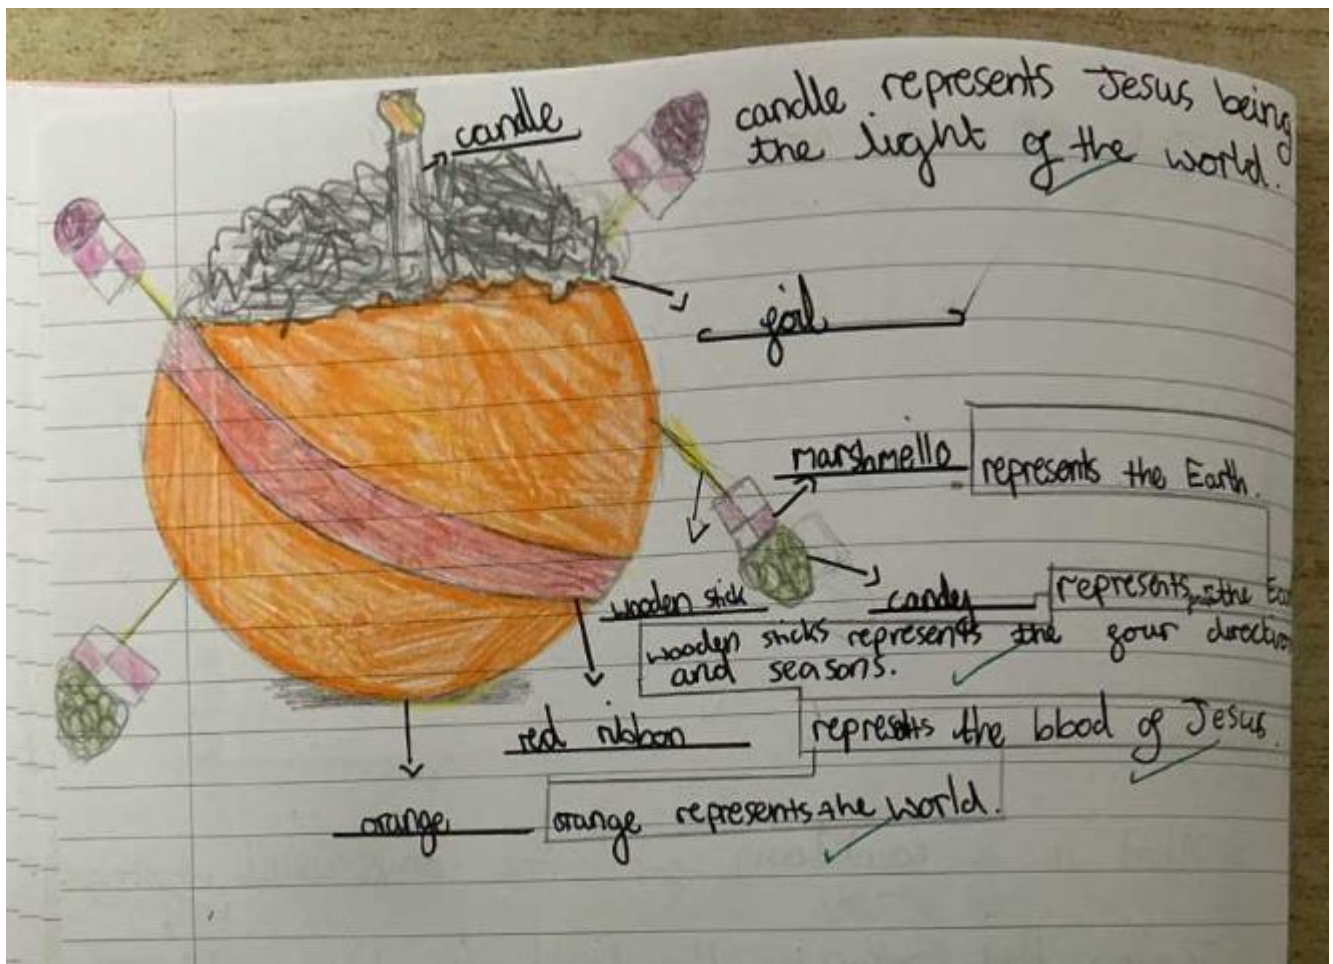 candle
candle represents Jesus being
the light of the world.
foil
marshmello
represents the Earth.
wooden stick
candy
represents the
wooden sticks represents the four
and seasons.
red ribbon
represents the blood of Jesus.
orange
orange represents the world.